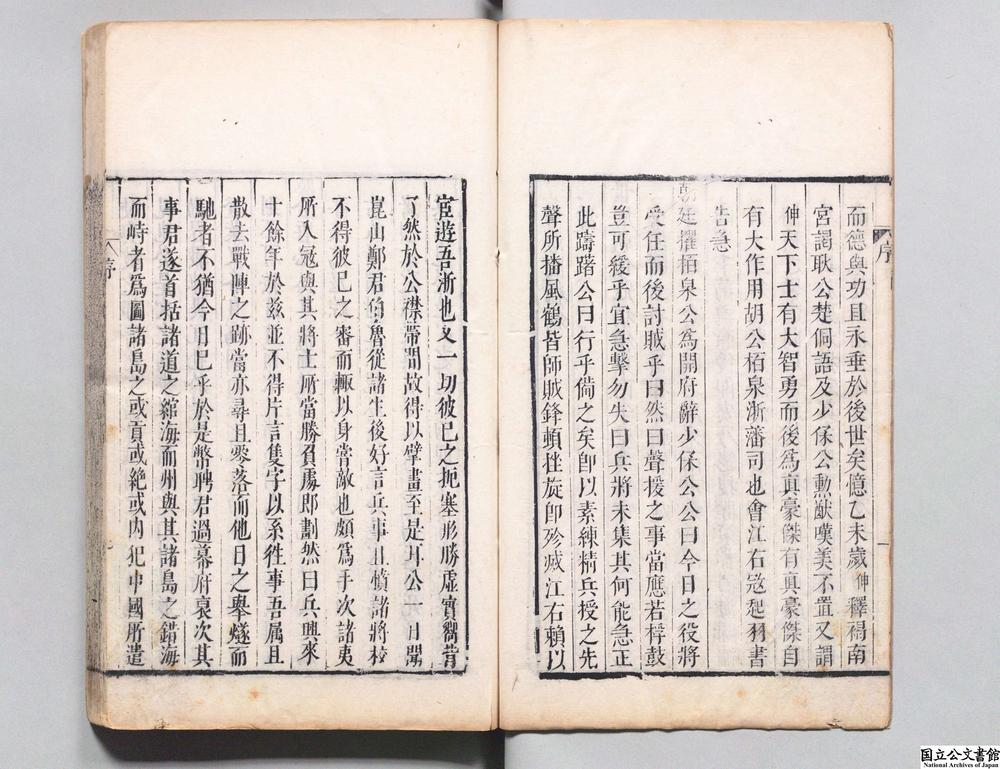 序
而德與功且永垂於後世矣憶乙未歲伸釋褐南
宮謁耿公楚侗語及少保公勲猷嘆美不置又謂
伸天下士有大智勇而後為真豪傑有真豪傑自
有大作用胡公栢泉浙藩司也會江右宼起羽書
告急
朝廷擢栢泉公為開府辭少保公公曰今日之役將
受任而後討賊乎曰然曰聲援之事當應若桴鼓
豈可緩乎宜急擊勿失曰兵將未集其何能急正
此躊躇公曰行乎偹之矣卽以素練精兵授之先
聲所播風鶴皆師賊鋒頓挫旋卽殄滅江右賴以
宦遊吾浙也又一切彼巳之扼塞形勝虛實嚮背
了然於公襟帶間故得以擘畫至是耳公一日聞
崑山鄭君伯魯從諸生後好言兵事且憤諸將校
不得彼巳之審而輙以身嘗敵也頗為手次諸夷
所入宼與其將士所當勝負處卽劃然曰兵興來
十餘年於兹並不得片言隻字以系徃事吾属且
散去戰陣之跡當亦尋且零落而他日之舉燧而
馳者不猶今日巳乎於是幣聘君過幕府裒次其
事君遂首括諸道之綰海而州與其諸島之錯海
而峙者為圖諸島之或貢或絶或内犯中國所遣
序
七
国立公文書館
National Archives of Japan